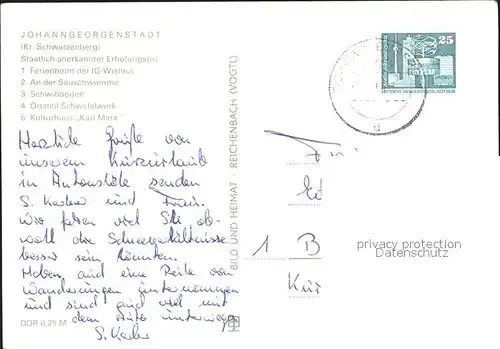 JOHANNGEORGENSTADT
(Kr. Schwarzenberg)
Staatlich anerkannter Erholungsort
1 Ferienheim der IG-Wismut
2 An der Sauschwemme
3 Schwibbogen
4 Ortsteil Schwefelwerk
5 Kulturhaus „Karl Marx
Herzliche Grüße von
unserem Kurzurlaub
in senden
S. und
Wir fahren viel Ski ob-
wohl die Schneeverhältnisse
besser sein könnten.
Haben auch eine Reihe von
Wanderungen unternommen
und sind auch viel mit
dem Auto unterwegs
S.
DDR 0,25 M
BILD UND HEIMAT · REICHENBACH (VOGTL)
25
1 B
privacy protection
Datenschutz